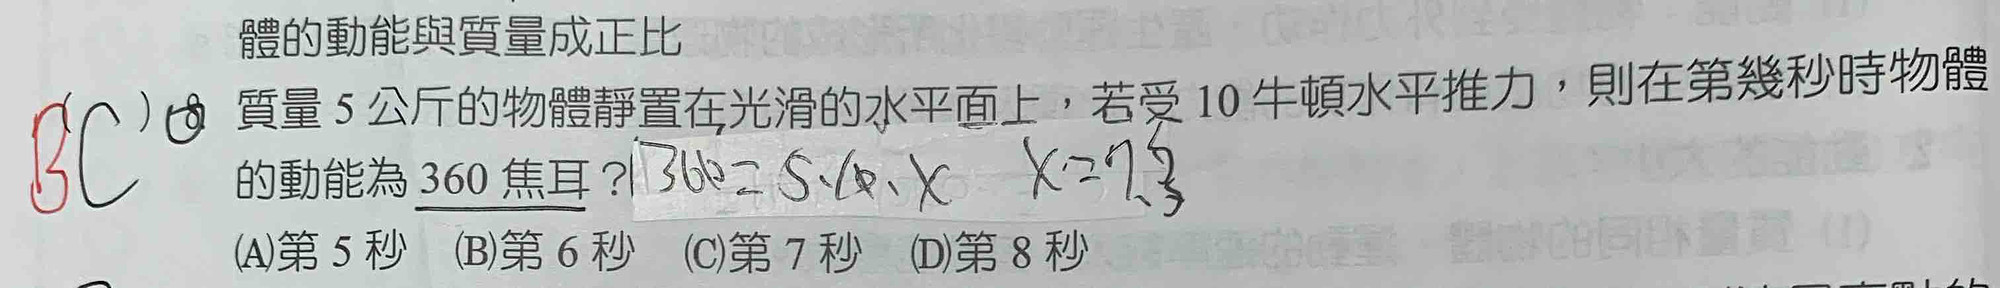 體的動能與質量成正比
BC ) 8 質量 5 公斤的物體靜置在光滑的水平面上，若受 10 牛頓水平推力，則在第幾秒時物體
的動能為 360 焦耳？ 360=5.10.X X=7.
(A)第 5 秒 (B)第 6 秒 (C)第 7 秒 (D)第 8 秒